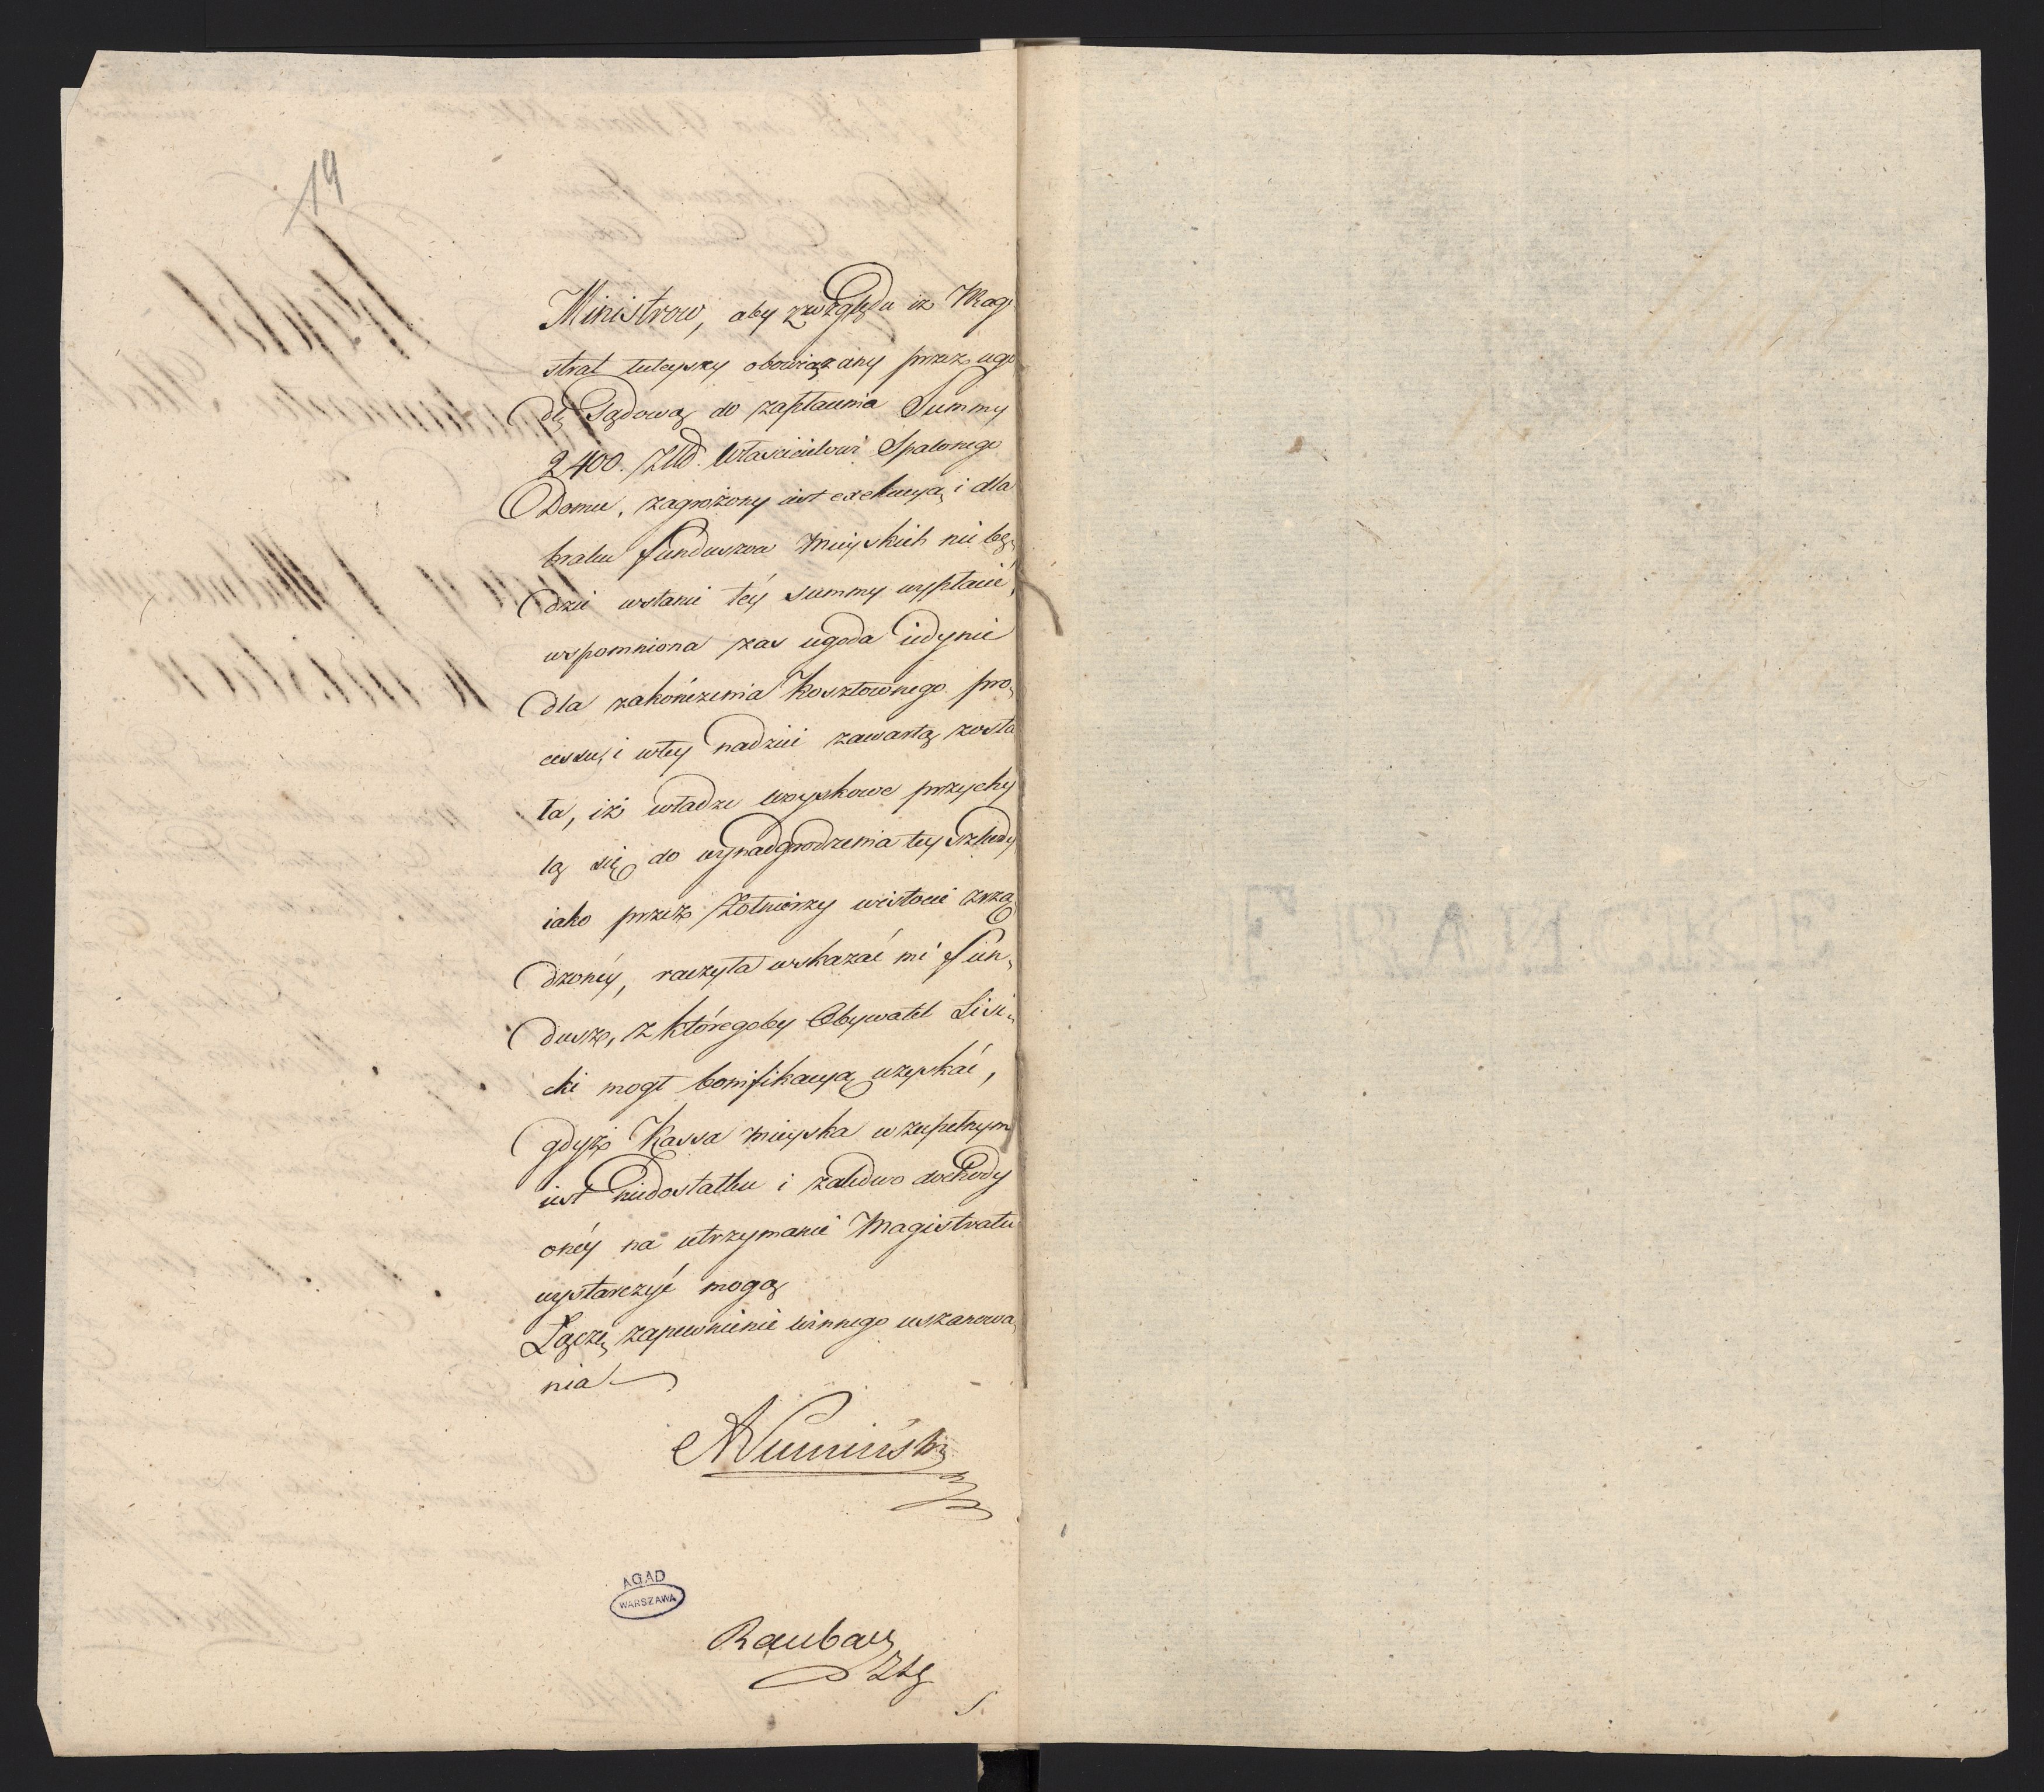 19
Ministrow, aby zwzględu iż Magi
strat tuteyszy obowiązany przez ugo
dę Sądową do zapłacenia Summy
2400. Złłd. Właścicielowi Spalonego
Domu, zagrożony iest exekucyą i dla
braku funduszow Mieyskich nie bę„
dzie wstanie téy summy wypłacić,
wspomniona zas ugoda iedynie
dla zakończenia kosztownego pro„
cessu, i wtey nadziei zawartą zosta
ła, iż władze woyskowe przychy
lą się do wynadgrodzenia tey szkody
iako przez Żołnierzy wistocie zrzą„
dzonéy, raczyła wskazać mi fun„
dusz, z któregoby Obywatel Lisi„
cki mogł bonifikacyą uzyskać,
gdyż Kassa mieyska w zupełnym
iest niedostatku i zaledwo dochody
onéy na utrzymanie Magistratu
wystarczyć mogą
Łączę zapewnienie winnego uszanowa„
nia
AGAD
WARSZAWA
FRANCOIZE